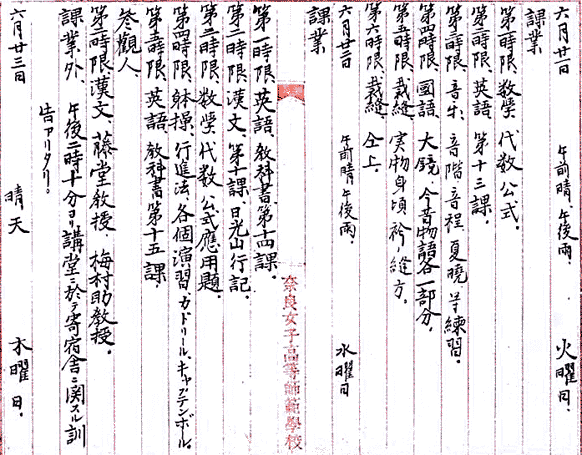 六月廿一日　午前晴、午後雨、　火曜日、
課業
第一時限、数学、代数公式、
第二時限、英語、第十三課、
第三時限、音楽、音階音程、夏暁、等練習、
第四時限、國語、大鏡、今昔物語各一部分、
第五時限、裁縫、実物身頃衿ノ縫方、
第六時限、裁縫、仝上、
六月廿二日　午前晴、午後雨、　水曜日
課業
奈良女子高等師範學校
第一時限、英語、教科書第十四課、
第二時限、漢文、第十課、日光山行記、
第三時限、数学、代数公式應用題、
第四時限、体操、行進法、各個演習、カドリール、キャプテンボール、
第五時限、英語、教科書第十五課、
参観人、
第二時限、漢文、藤堂教授、梅村助教授、
課業外、午後二時十分ヨリ講堂ニ於テ寄宿舎ニ関スル訓
告アリタリ。
六月廿三日　晴天　木曜日、